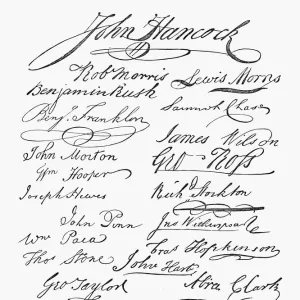 John Hancock
Robt Morris Lewis Morris
Benjamin Rush
Benj. Franklin Samuel Chase
John Morton James Wilson
Wm Hooper Geo Ross
Joseph Hewes Richd Stockton
John Penn Jno Witherspoon
Wm Paca Fras Hopkinson
Thos Stone John Hart
Geo Taylor Abra Clark